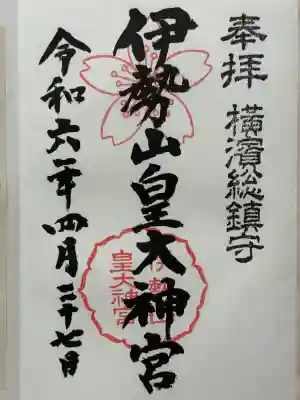 奉拝
横濱総鎮守
伊勢山皇大神宮
伊勢山
皇大神宮
令和六年四月二十七日